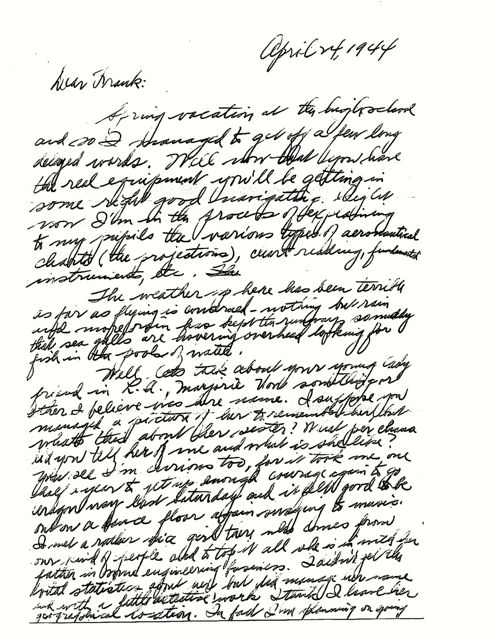 April 24, 1944
Dear Frank:
Spring vacation at the high school
and so I managed to get off a few long
delayed words. Well now that you have
the real equipment you'll be getting in
some right good navigating. Right
now I'm in the process of explaining
to my pupils the various types of aeronautical
charts (the projections), chart reading, fundamental
instruments, etc. The
The weather up here has been terrible
as far as flying is concerned - nothing but rain
and more rain has kept the runways so muddy
that sea gulls are hovering overhead looking for
fish in the pools of water.
Well, lets talk about your young lady
friend in L.A., Marjorie Von something or
other I believe was her name. I suppose you
managed a picture of her to remember her but
what's this about her sister? What per chance
did you tell her of me and what is she like?
You see I'm curious too, for it took me one
half a year to get up enough courage again to go
last Saturday and it felt good to be
out on a dance floor again swaying to music.
I met a rather nice girl too, who comes from
our kind of people and to top it all she is in with her
father in some engineering business. I didn't get the
vital statistics about her but did manage her name
and with a little detective work I think I have her
geographical location. In fact I'm planning on going